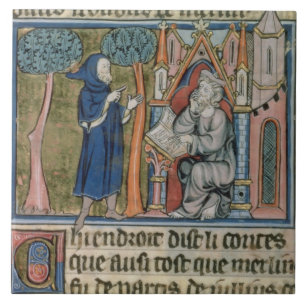 Chi endroit dist li contes
que ausi tost que merlin
fu departis de iulius